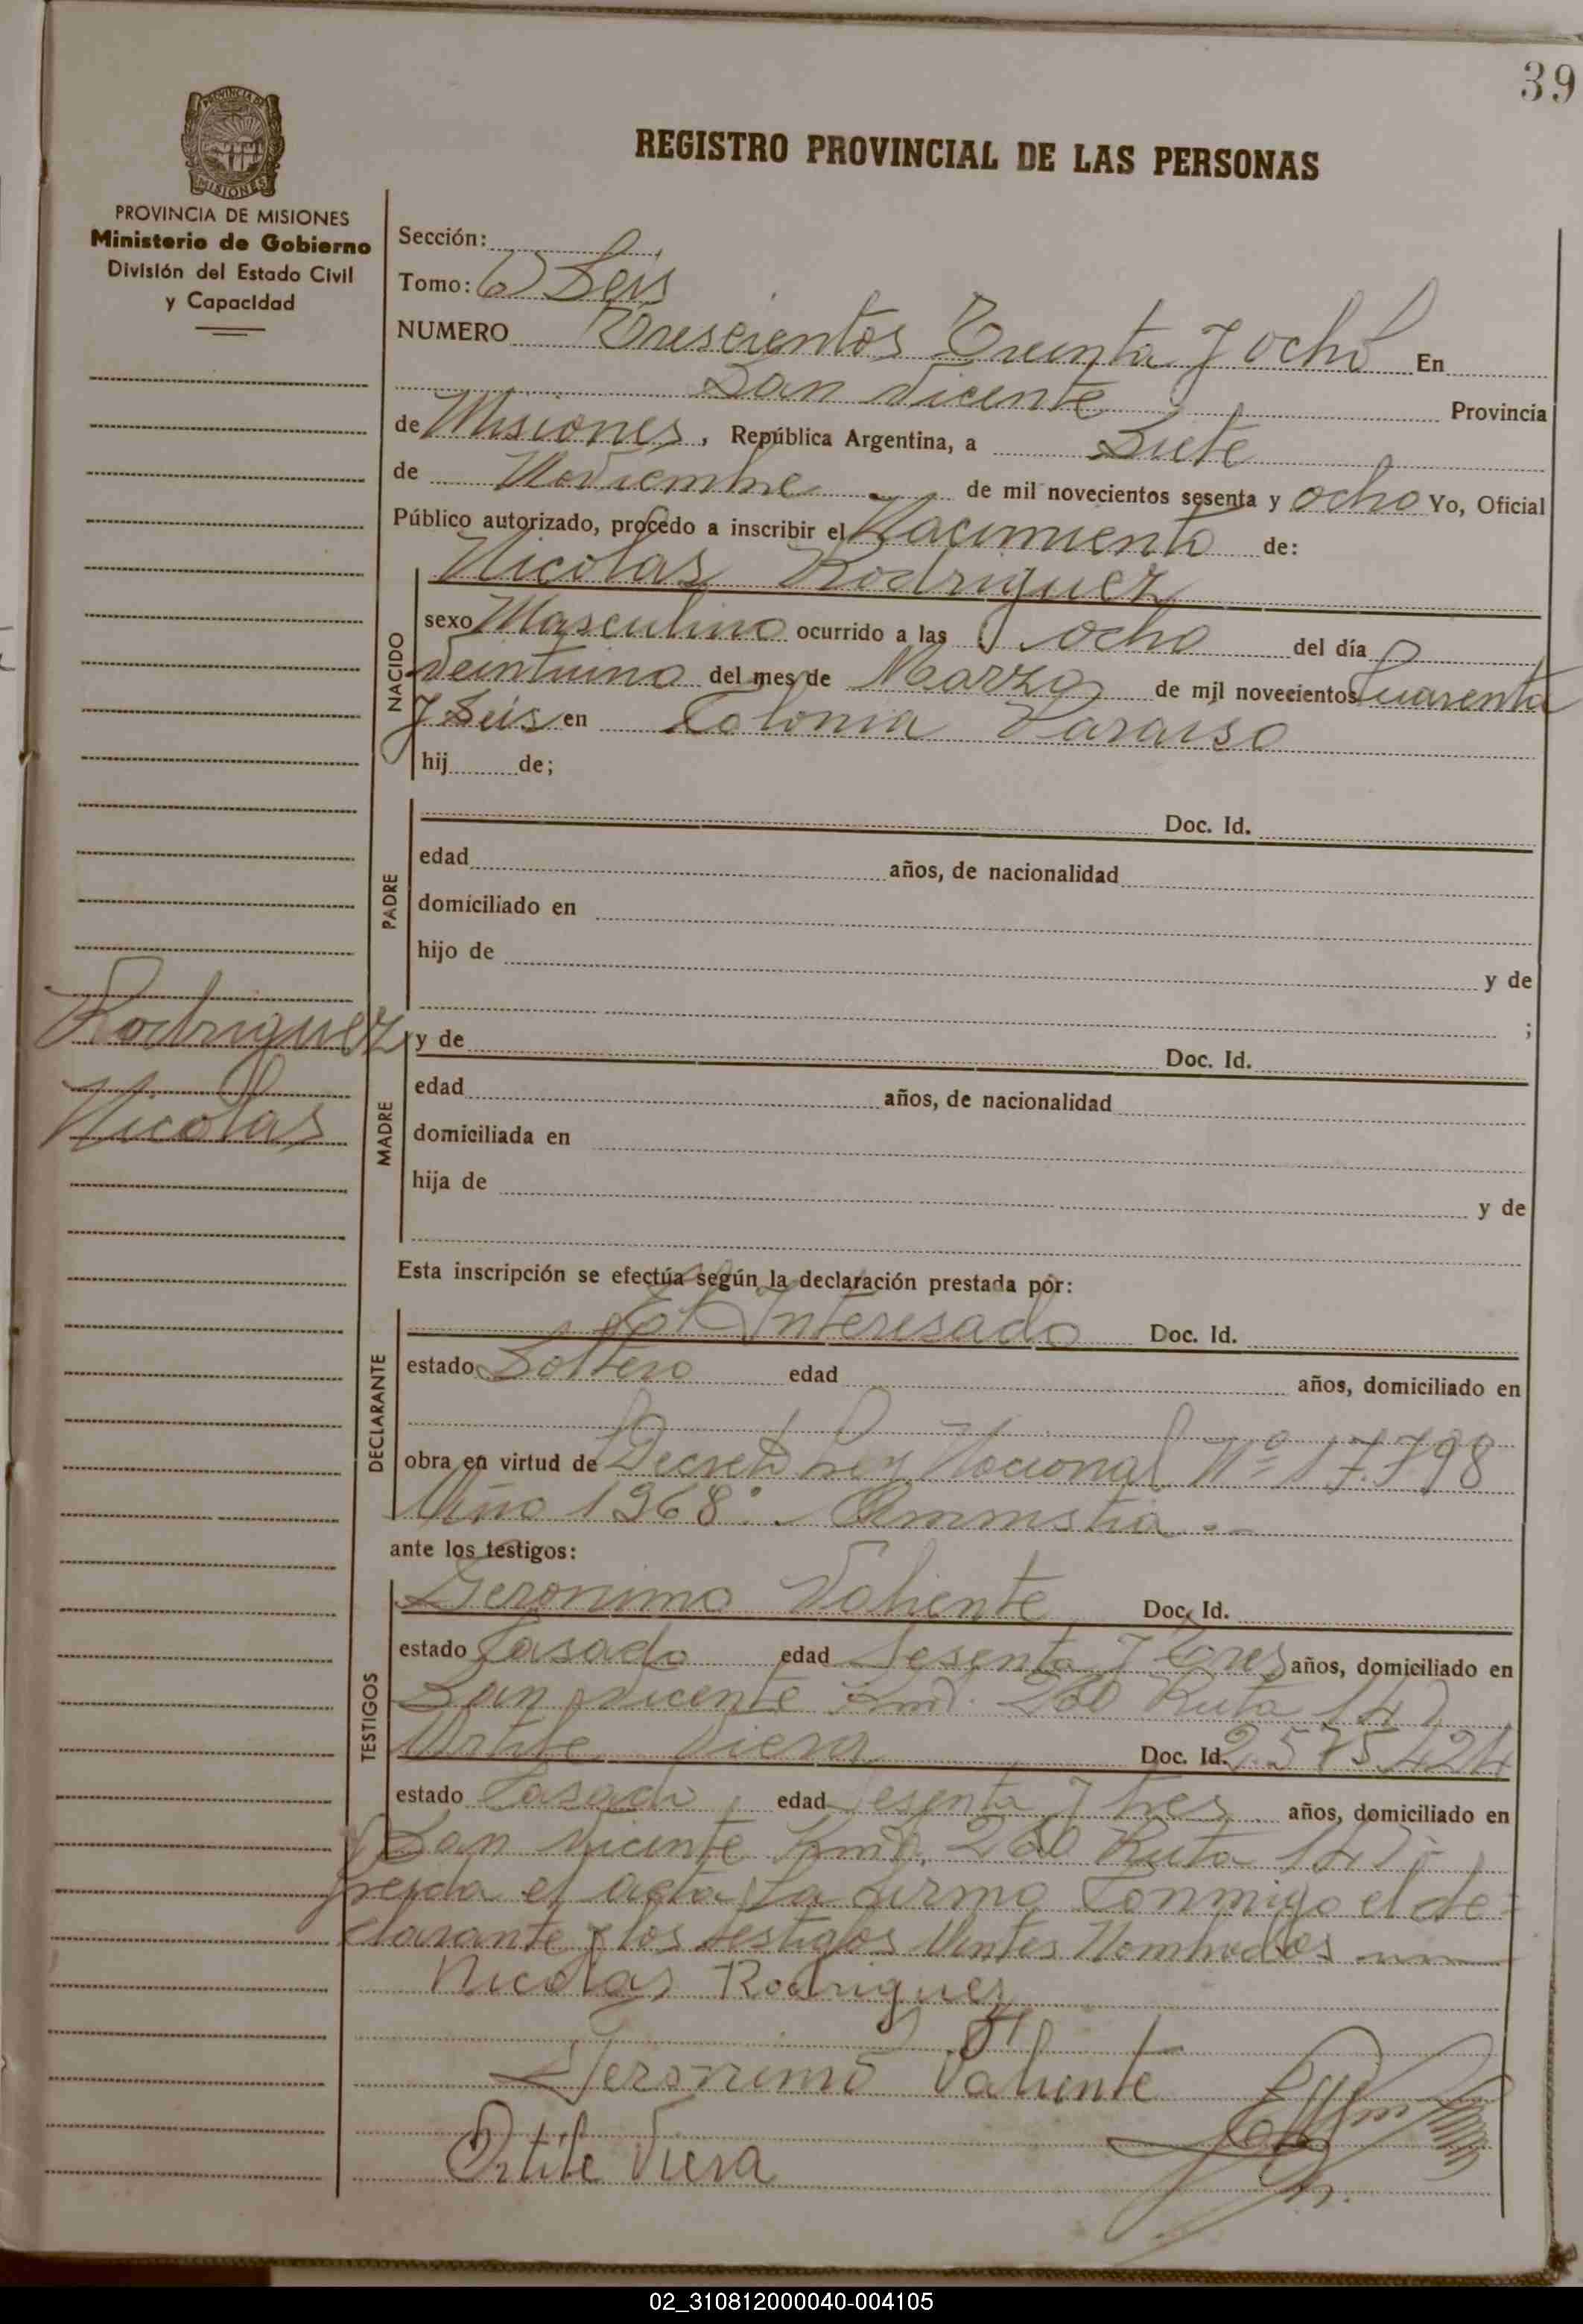 39
REGISTRO PROVINCIAL DE LAS PERSONAS
PROVINCIA DE MISIONES
Ministerio de Gobierno
División del Estado Civil
y Capacidad
Sección:
Tomo: 6) Seis
NUMERO Trescientos Treinta y ocho En
San Vicente Provincia
de Misiones, República Argentina, a Siete
de Noviembre de mil novecientos sesenta y ocho Yo, Oficial
Público autorizado, procedo a inscribir el Nacimiento de:
Nicolas Rodriguez
NACIDO
sexo Masculino ocurrido a las ocho del día
Veintiuno del mes de Marzo de mil novecientos Cuarenta
y Seis en Colonia Paraiso
hij de;
PADRE
Doc. Id.
edad años, de nacionalidad
domiciliado en
hijo de y de
;
Rodriguez
Nicolas
MADRE
y de Doc. Id.
edad años, de nacionalidad
domiciliada en
hija de y de
Esta inscripción se efectúa según la declaración prestada por:
DECLARANTE
El Interesado Doc. Id.
estado Soltero edad años, domiciliado en
obra en virtud de Decreto Ley Nacional Nº 17.798
Año 1968. Amnistia
ante los testigos:
TESTIGOS
Geronimo Valiente Doc. Id.
estado Casado edad Sesenta y Tres años, domiciliado en
San Vicente Km. 260 Ruta 14
Viera Doc. Id. 2.575.424
estado Casado edad Sesenta y tres años, domiciliado en
San Vicente Km. 260 Ruta 14
el acta La firma Conmigo el de=
clarante y los testigos Antes Nombrados
Nicolas Rodriguez
Jeronimo Valiente
Viera
02_310812000040-004105